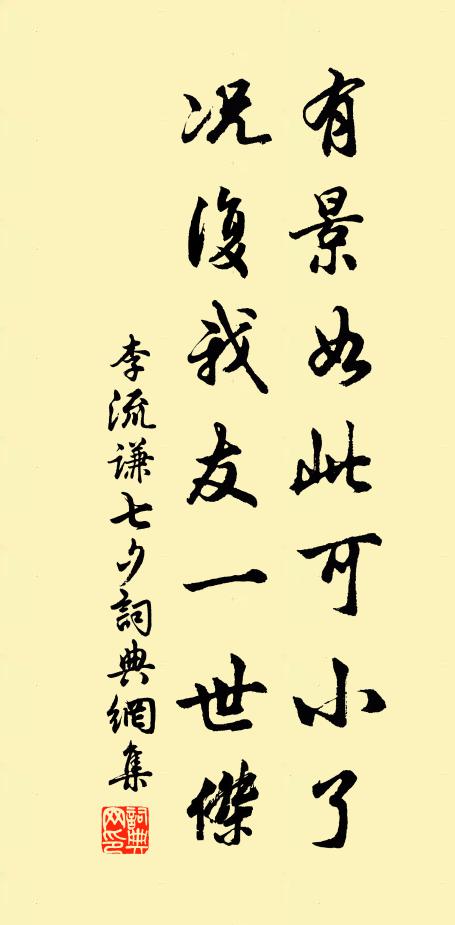 有景如此可小了
况復我友一世傑
李流謙七夕詞典網集
詞典网印